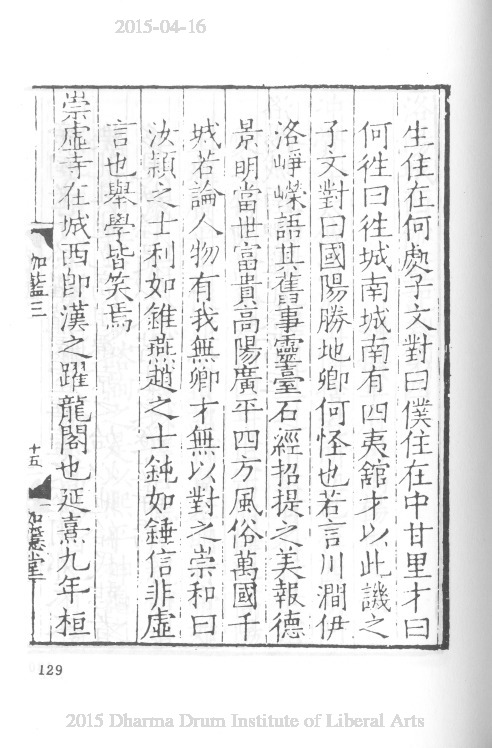 2015-04-16
生住在何處子文對曰僕住在中甘里才曰
何徃曰徃城南城南有四夷舘才以此譏之
子文對曰國陽勝地卿何怪也若言川澗伊
洛崢嶸語其舊事靈臺石經招提之美報德
景明當世富貴高陽廣平四方風俗萬國千
城若論人物有我無卿才無以對之崇和曰
汝潁之士利如錐燕趙之士鈍如錘信非虛
言也舉學皆笑焉
崇虛寺在城西卽漢之躍龍閣也延熹九年桓
伽藍三
十五
如隱堂
129
2015 Dharma Drum Institute of Liberal Arts